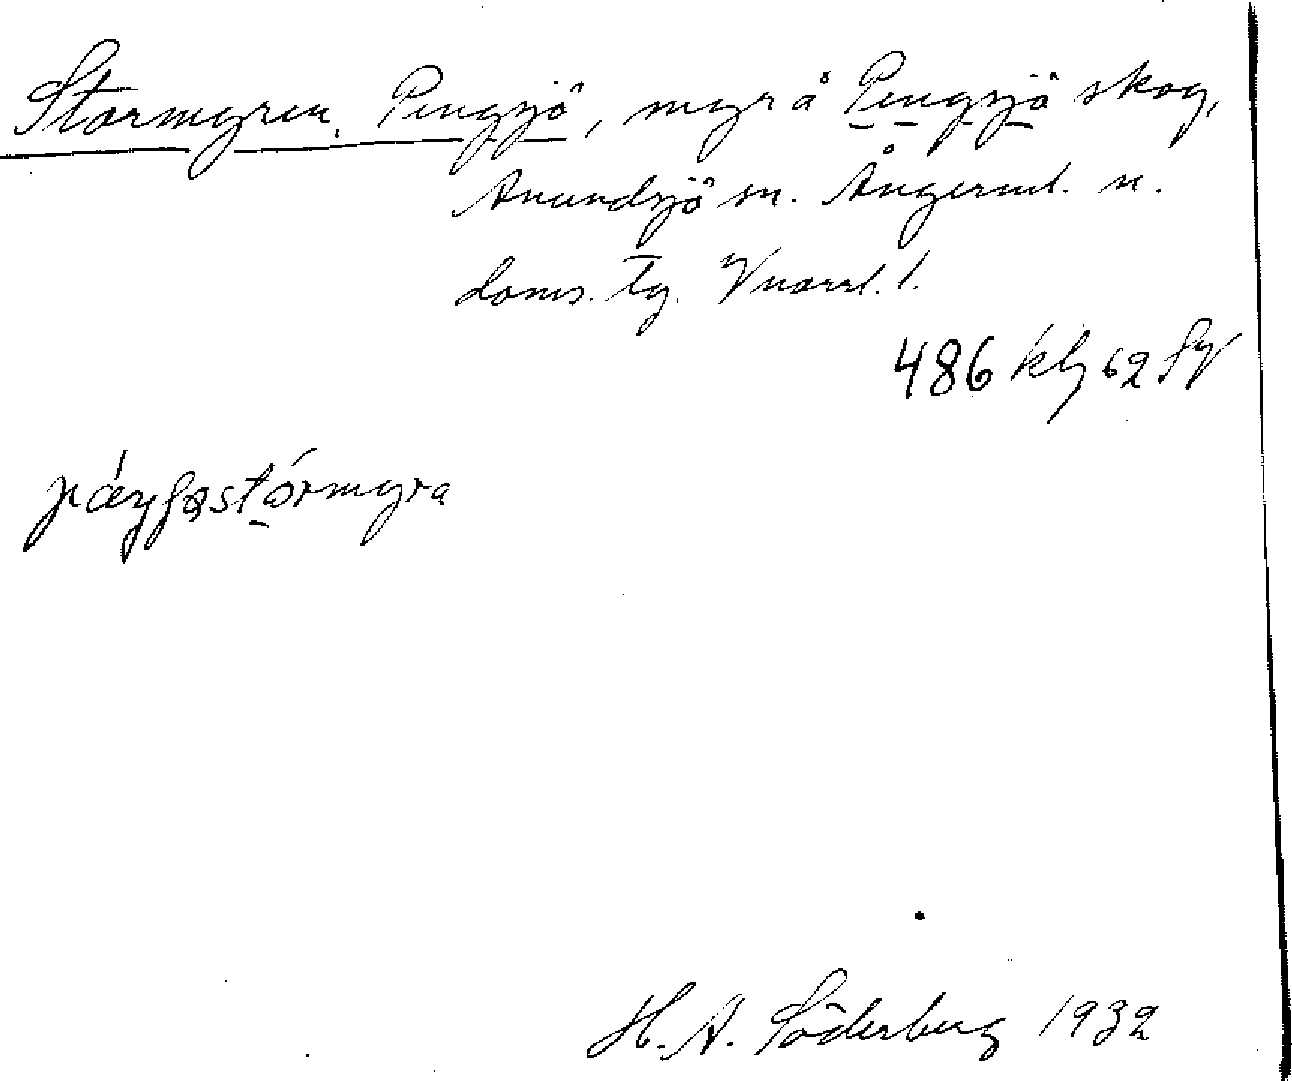 Stormyren, Pengsjö, myr å Pengsjö skog,
Anundsjö sn. Ångerml. n.
doms. tg. Vnorrl. l.
486 kbg 62 SV
páŋʃøstórmyra
H. A. Söderberg 1932